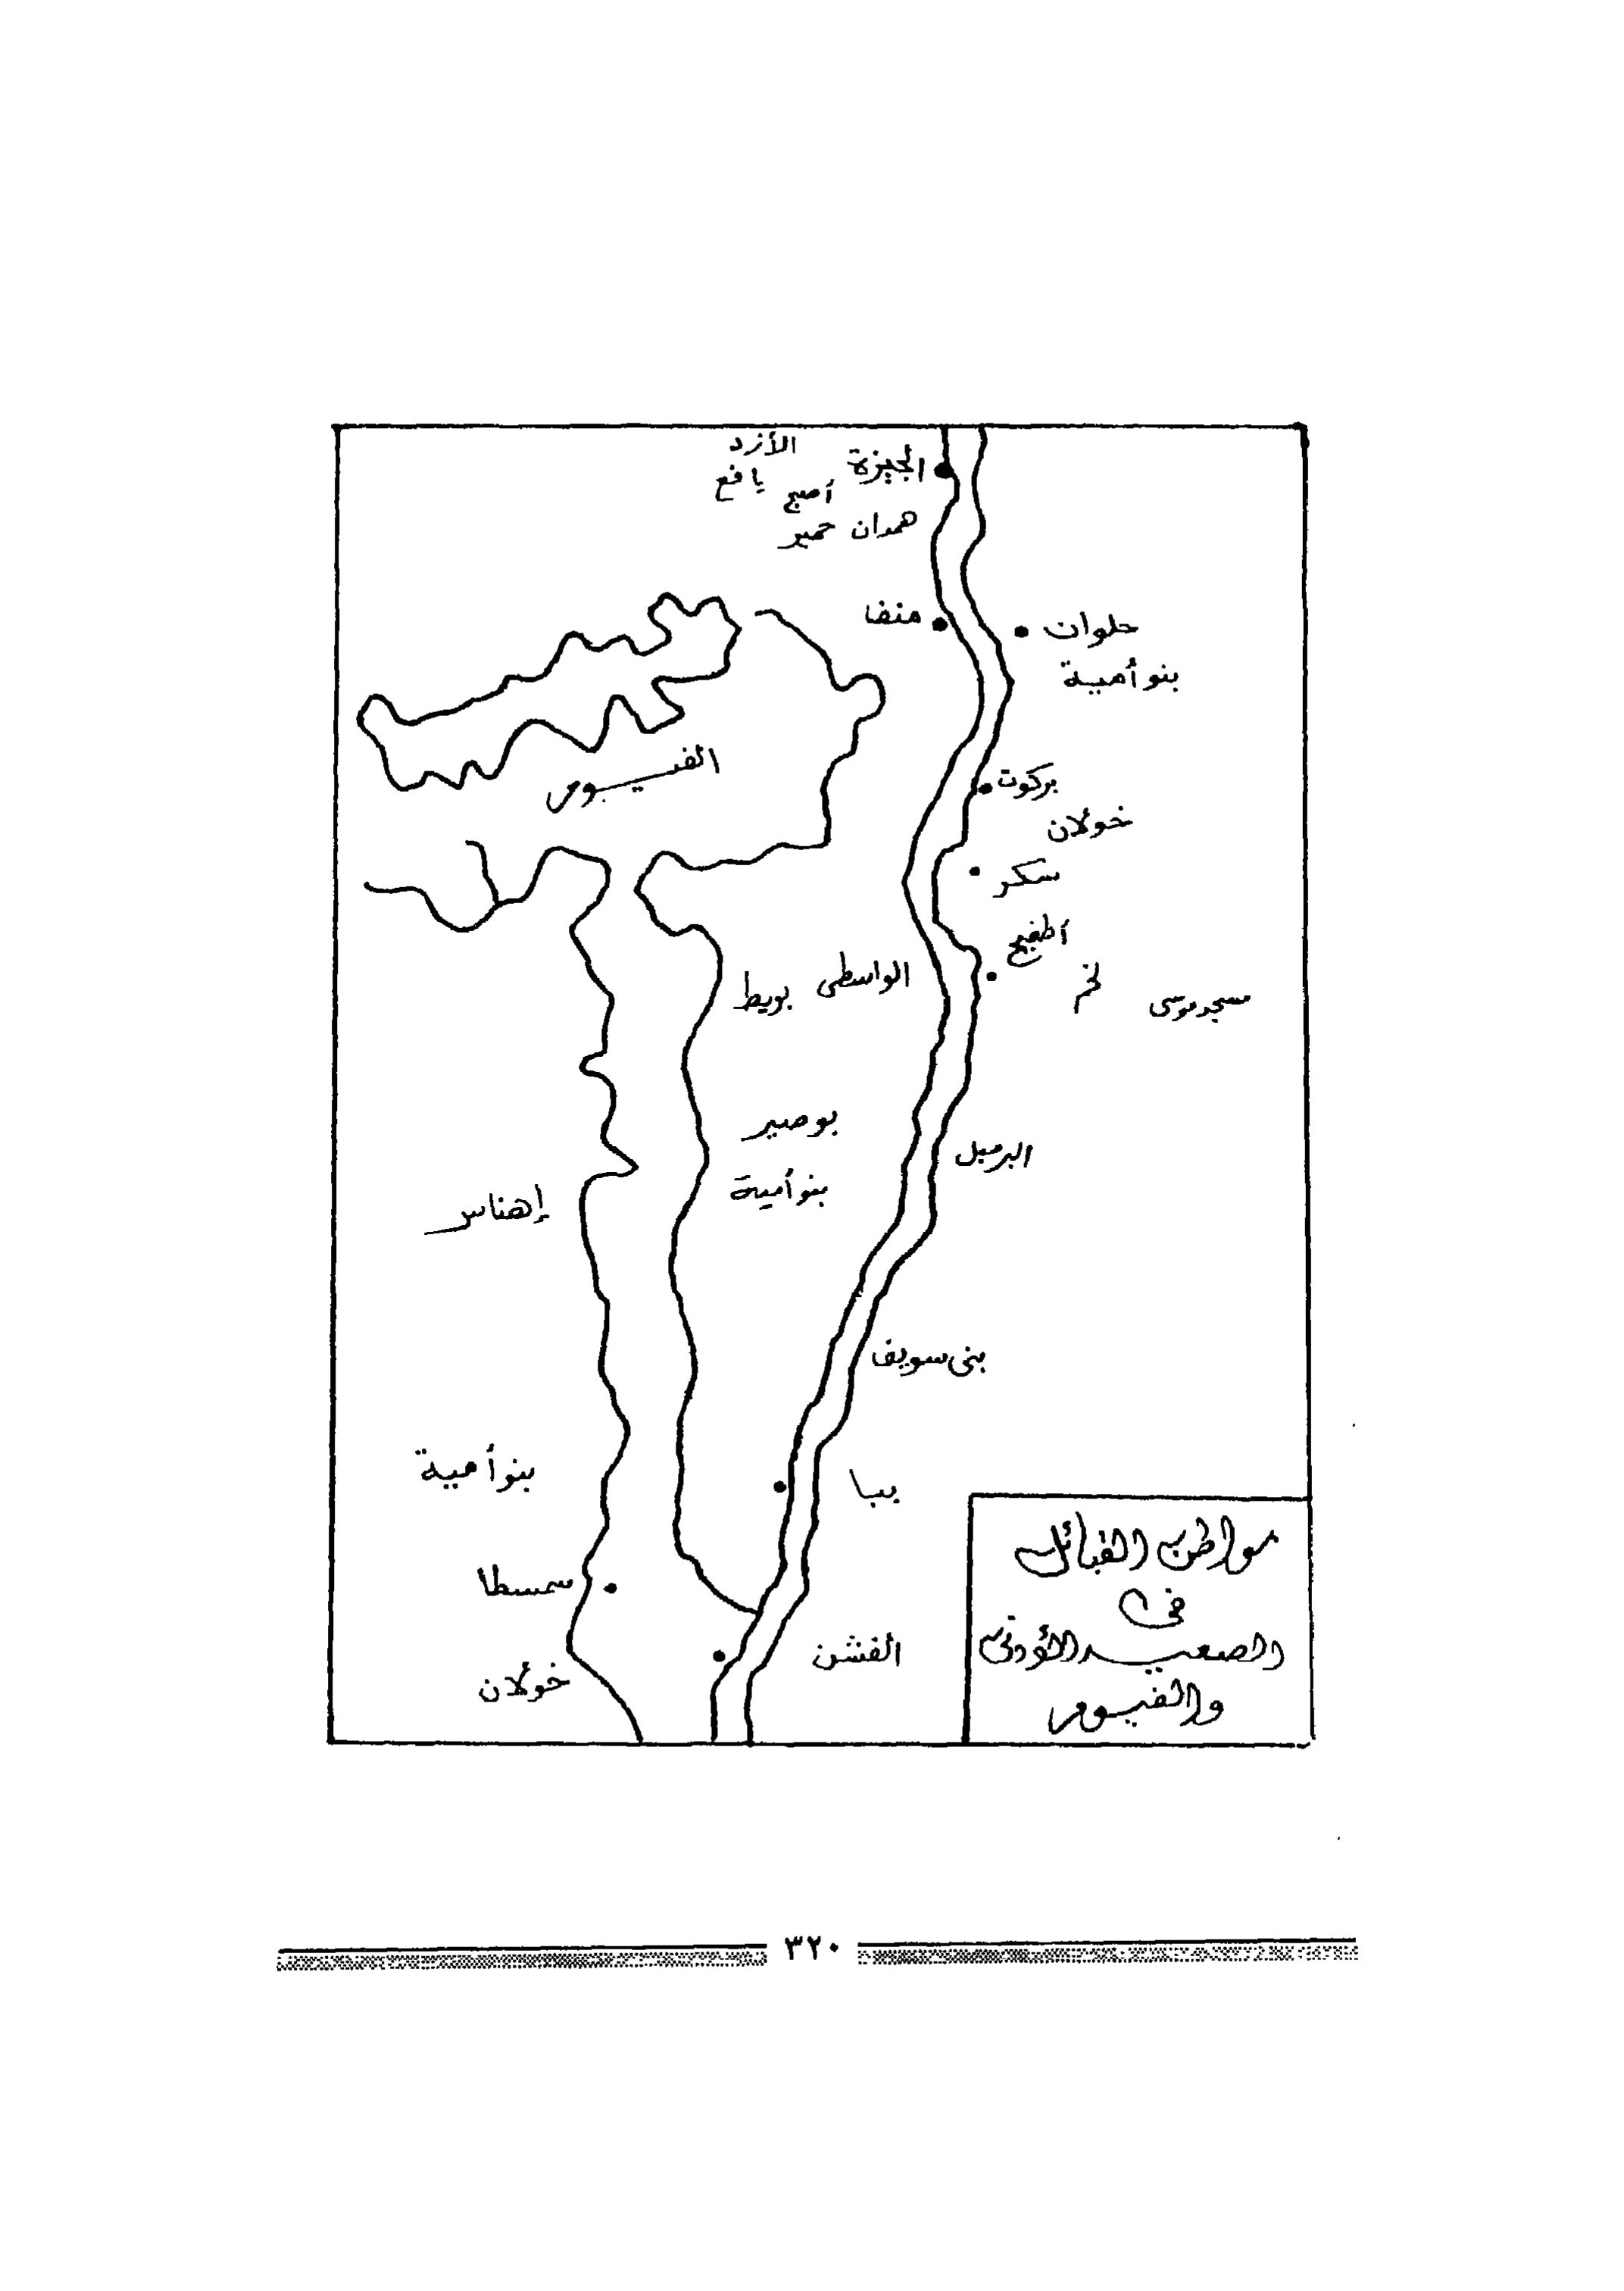 الأزد
الجيزة
يافع
أصبح
همدان حمير
منف
حلوان
بنو أمية
الفيوم
بركوت
خولان
سكر
أطفيح
لخم
مسجد موسى
الواسطى
بويط
بوصير
البرمبل
بنو أمية
إهناس
بنى سويف
بنو أمية
ببا
سمسطا
الفشن
خولان
مواطن القبائل
فى
الصعيد الأدنى
والفيوم
٣٢٠